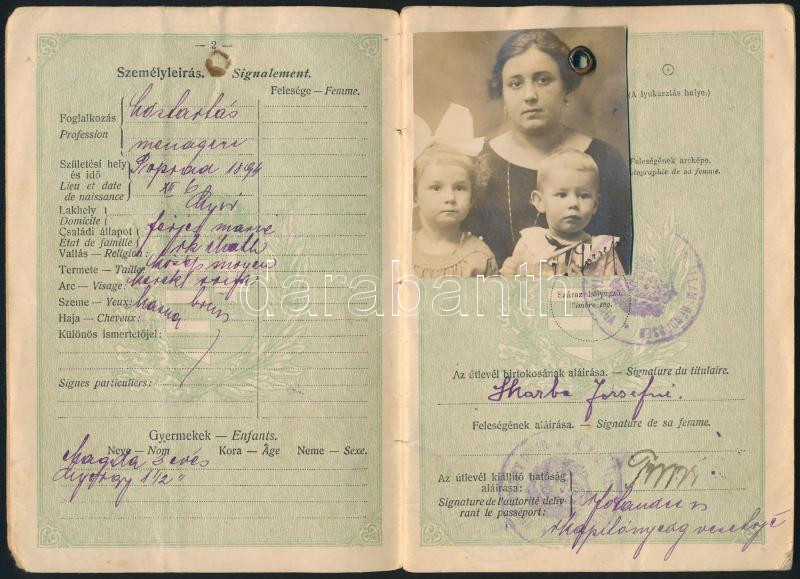 — 2 —
Személyleírás. Signalement.
Felesége — Femme.
Foglalkozás
Profession
háztartás
menagere
Születési hely és idő
Lieu et date de naissance
Poprad 1894
XII 6
Lakhely
Domicile
Győr
Családi állapot
État de famille
férjes mariée
Vallás — Religion: kath
Termete — Taille: közép moyen
Arc — Visage:
Szeme — Yeux: barna bruns
Haja — Cheveux:
Különös ismertetőjel:
Signes particuliers:
Gyermekek — Enfants.
Neve — Nom Kora — Âge Neme — Sexe.
Magda 3 éves
György 1 1/2 "
(A lyukasztás helye.)
Feleségének arcképe.
Photographie de sa femme.
Száraz bélyegző.
Timbre sec.
Az útlevél birtokosának aláírása. — Signature du titulaire.
Skarba Józsefné.
Feleségének aláírása. — Signature de sa femme.
Az útlevél kiállító hatóság aláírása:
Signature de l'autorité délivrant le passeport:
kapitányság vezetője
darabanth